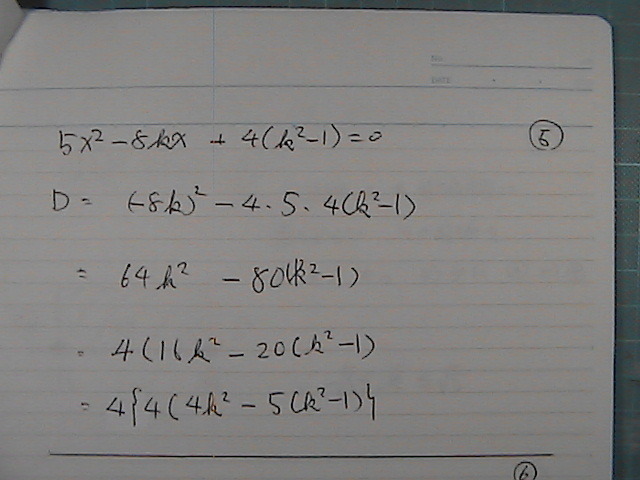 No.
DATE
5x² - 8kx + 4(k²-1) = 0 ⑤
D = (-8k)² - 4・5・4(k²-1)
= 64k² - 80(k²-1)
= 4(16k² - 20(k²-1)
= 4{4(4k² - 5(k²-1)}
⑥